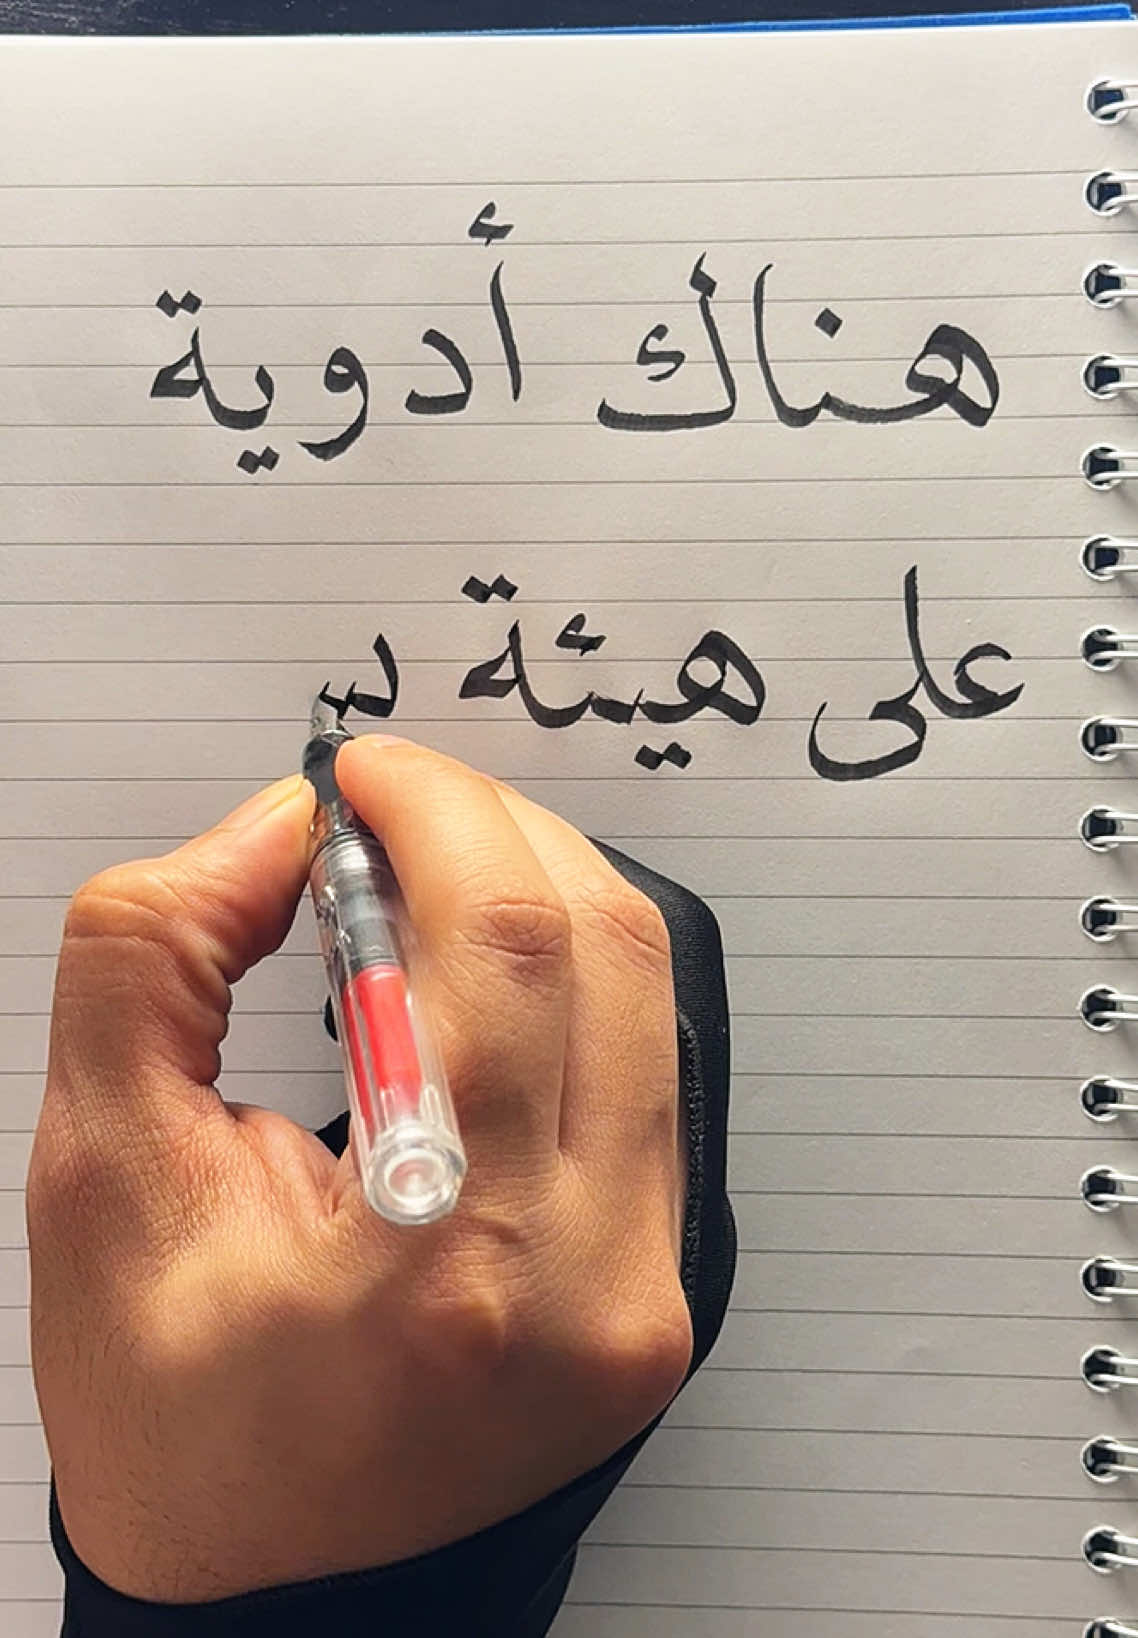 هناك أدوية
على هيئة